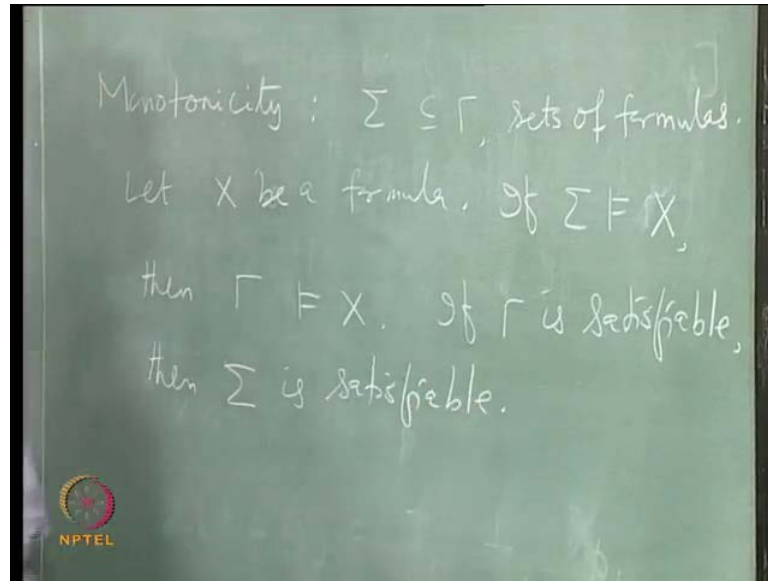 Monotonicity : Σ ⊆ Γ, sets of formulas.
Let X be a formula. If Σ ⊨ X,
then Γ ⊨ X. If Γ is satisfiable,
then Σ is satisfiable.
NPTEL